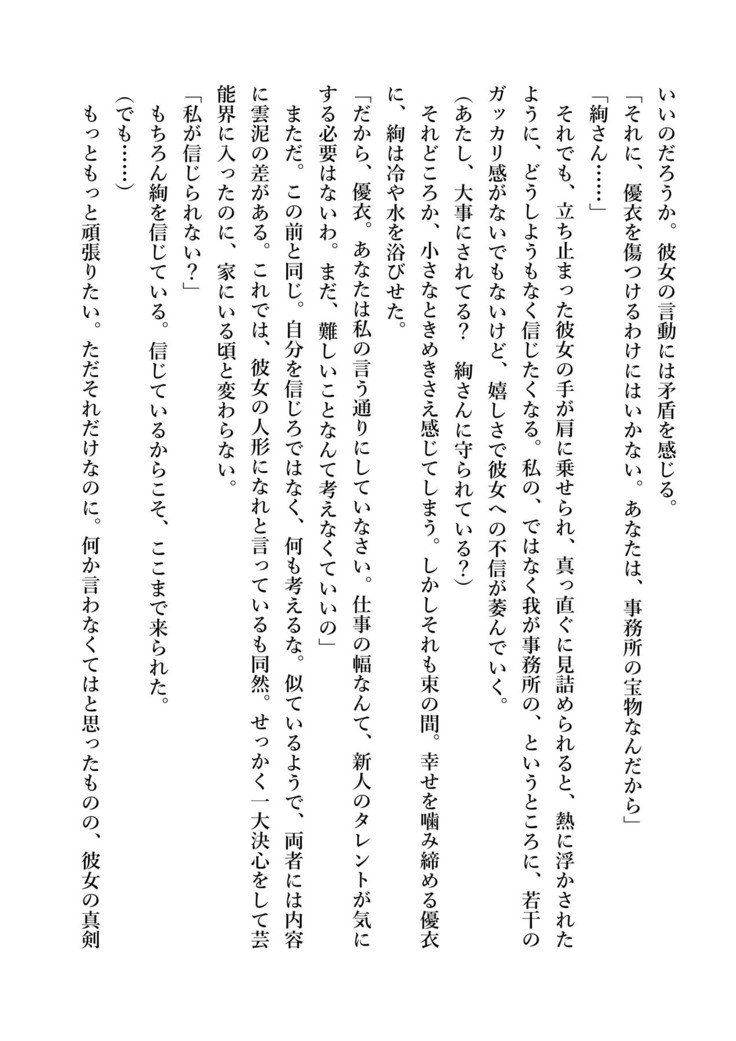 いいのだろうか。彼女の言動には矛盾を感じる。
「それに、優衣を傷つけるわけにはいかない。あなたは、事務所の宝物なんだから」
「絢さん……」
それでも、立ち止まった彼女の手が肩に乗せられ、真っ直ぐに見詰められると、熱に浮かされた
ように、どうしようもなく信じたくなる。私の、ではなく我が事務所の、というところに、若干の
ガッカリ感がないでもないけど、嬉しさで彼女への不信が萎んでいく。
(あたし、大事にされてる？　絢さんに守られている？)
それどころか、小さなときめきさえ感じてしまう。しかしそれも束の間。幸せを噛み締める優衣
に、絢は冷や水を浴びせた。
「だから、優衣。あなたは私の言う通りにしていなさい。仕事の幅なんて、新人のタレントが気に
する必要はないわ。まだ、難しいことなんて考えなくていいの」
まただ。この前と同じ。自分を信じろではなく、何も考えるな。似ているようで、両者には内容
に雲泥の差がある。これでは、彼女の人形になれと言っているも同然。せっかく一大決心をして芸
能界に入ったのに、家にいる頃と変わらない。
「私が信じられない？」
もちろん絢を信じている。信じているからこそ、ここまで来られた。
(でも……)
もっともっと頑張りたい。ただそれだけなのに。何か言わなくてはと思ったものの、彼女の真剣